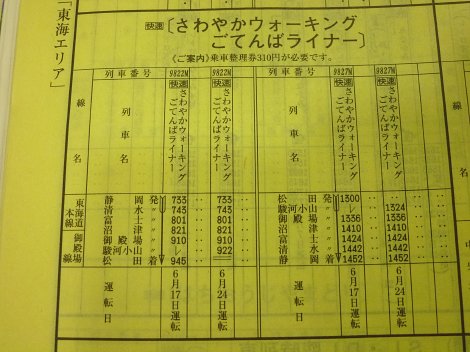 「東海エリア」
快速〔さわやかウォーキング
ごてんばライナー〕
《ご案内》乗車整理券310円が必要です。
線名
列車番号 9822M 9822M
列車名 快速さわやかウォーキングごてんばライナー 快速さわやかウォーキングごてんばライナー
東海道本線 静岡発 733 733
清水〃 743 743
富士〃 801 801
沼津〃 821 821
御殿場線 御殿場〃 910 910
駿河小山〃 レ 922
松田着 945 ‥
運転日 6月17日運転 6月24日運転
列車番号 9827M 9827M
列車名 快速さわやかウォーキングごてんばライナー 快速さわやかウォーキングごてんばライナー
松田発 1300 ‥
駿河小山〃 レ 1324
御殿場〃 1336 1336
沼津〃 1410 1410
富士〃 1424 1424
清水〃 1442 1442
静岡着 1452 1452
運転日 6月17日運転 6月24日運転